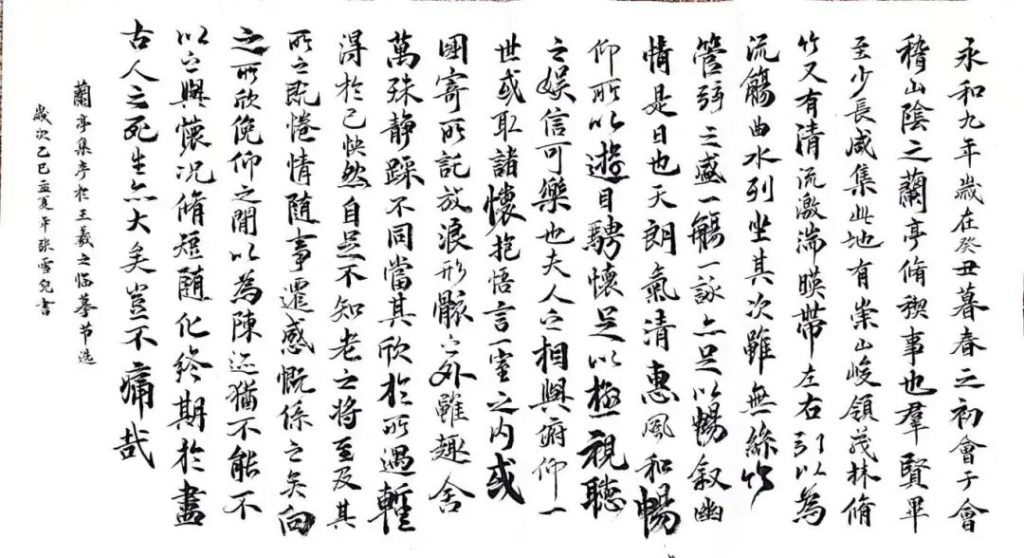 永和九年歲在癸丑暮春之初會于會
稽山陰之蘭亭脩稧事也羣賢畢
至少長咸集此地有崇山峻領茂林脩
竹又有清流激湍暎帶左右引以為
流觴曲水列坐其次雖無絲竹
管弦之盛一觴一詠亦足以暢叙幽
情是日也天朗氣清惠風和暢
仰所以遊目騁懷足以極視聽
之娛信可樂也夫人之相與俯仰一
世或取諸懷抱悟言一室之內或
因寄所託放浪形骸之外雖趣舍
萬殊静躁不同當其欣於所遇暫
得於己快然自足不知老之將至及其
所之既惓情隨事遷感慨係之矣向
之所欣俛仰之間以為陳迹猶不能不
以之興懷況脩短隨化終期於盡
古人云死生亦大矣豈不痛哉
蘭亭集序於王羲之臨摹节选
歲次乙巳孟夏 张雪兒書